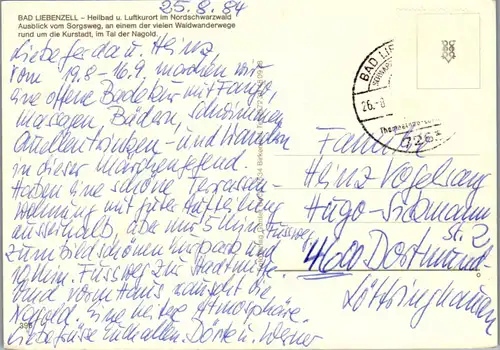 25.8.84
BAD LIEBENZELL – Heilbad u. Luftkurort im Nordschwarzwald
Ausblick vom Sorgsweg, an einem der vielen Waldwanderwege
rund um die Kurstadt, im Tal der Nagold.
Liebe Gerda u. Heinz,
Vom 19.8 – 16.9 machen wir
eine offene Badekur mit Fango,
massagen, Bäden, schwimmen,
Quellentrinken – und wandern
in dieser Märchengegend.
Haben eine schöne Terrassen-
Wohnung mit guter Aufteilung
ausserhalb, aber nur 5 Min Fussweg
zum bildschönen Kurpark und
10 Min. Fussweg zur Stadtmitte
Und vorm Haus rauscht die
Nagold. Eine heitere Atmosphäre.
Liebe Grüsse Euch allen. Dörte u. Werner
398
BAD LIE
26.-8
726
Familie
Heinz Vogelsang
Hugo-Sickmann
Str. 2
4600 Dortmund
Löttringhausen